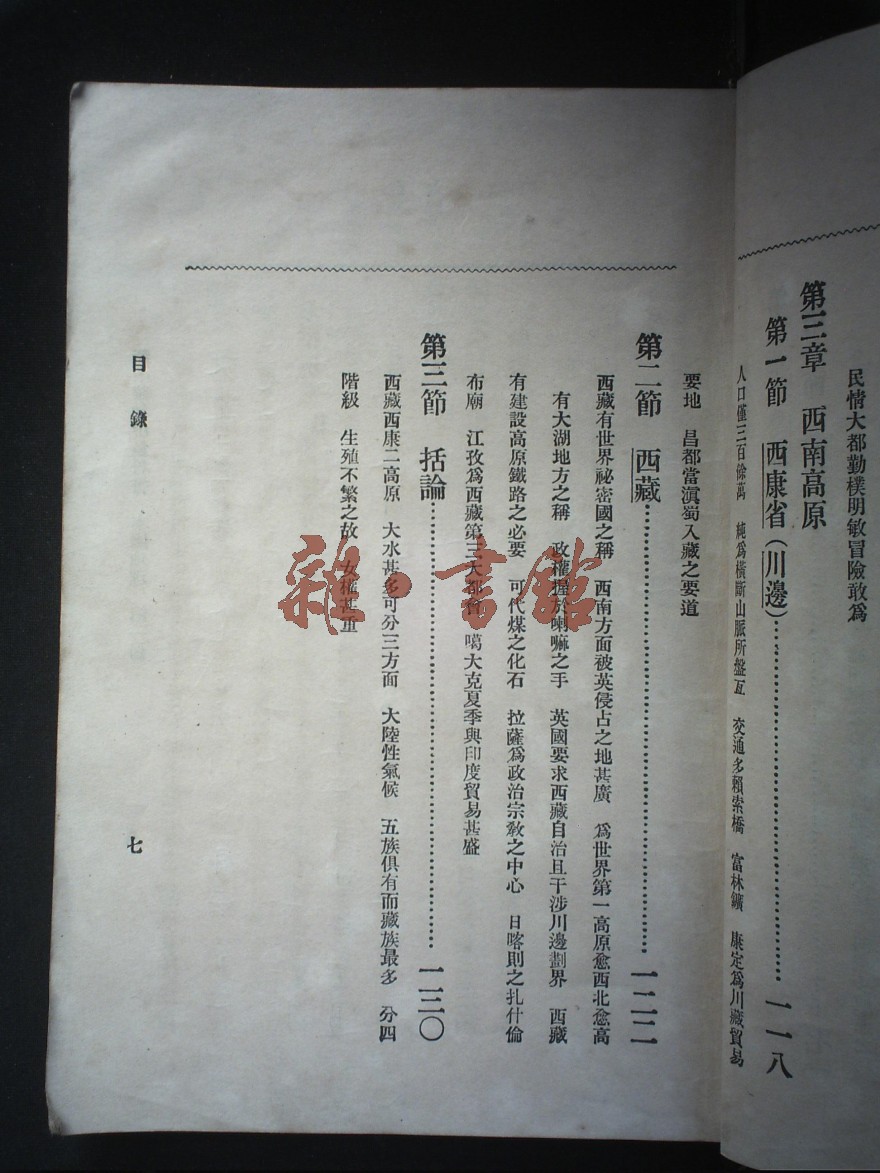 民情大都勤樸明敏冒險敢爲
第三章　西南高原
第一節　西康省（川邊）……一一八
人口僅三百餘萬　純爲橫斷山脈所盤亙　交通多賴索橋　富林鑛　康定爲川藏貿易
要地　昌都當滇蜀入藏之要道
第二節　西藏……一二二
西藏有世界祕密國之稱　西南方面被英侵占之地甚廣　爲世界第一高原愈西北愈高
有大湖地方之稱　政權握於喇嘛之手　英國要求西藏自治且干涉川邊劃界　西藏
有建設高原鐵路之必要　可代煤之化石　拉薩爲政治宗教之中心　日喀則之扎什倫
布廟　江孜爲西藏第三大都會　噶大克夏季與印度貿易甚盛
第三節　括論……一三〇
西藏西康二高原　大水甚多可分三方面　大陸性氣候　五族俱有而藏族最多　分四
階級　生殖不繁之故　女權甚重
目錄
七
雜·書館